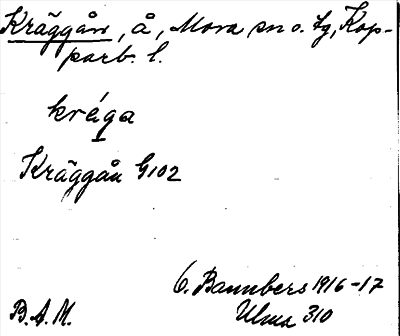 Kräggån, å, Mora sn o. tg, Kop-
parb. l.
kréga
Kräggån G102
O. Bannbers 1916-17
B.A.M. Ulma 310